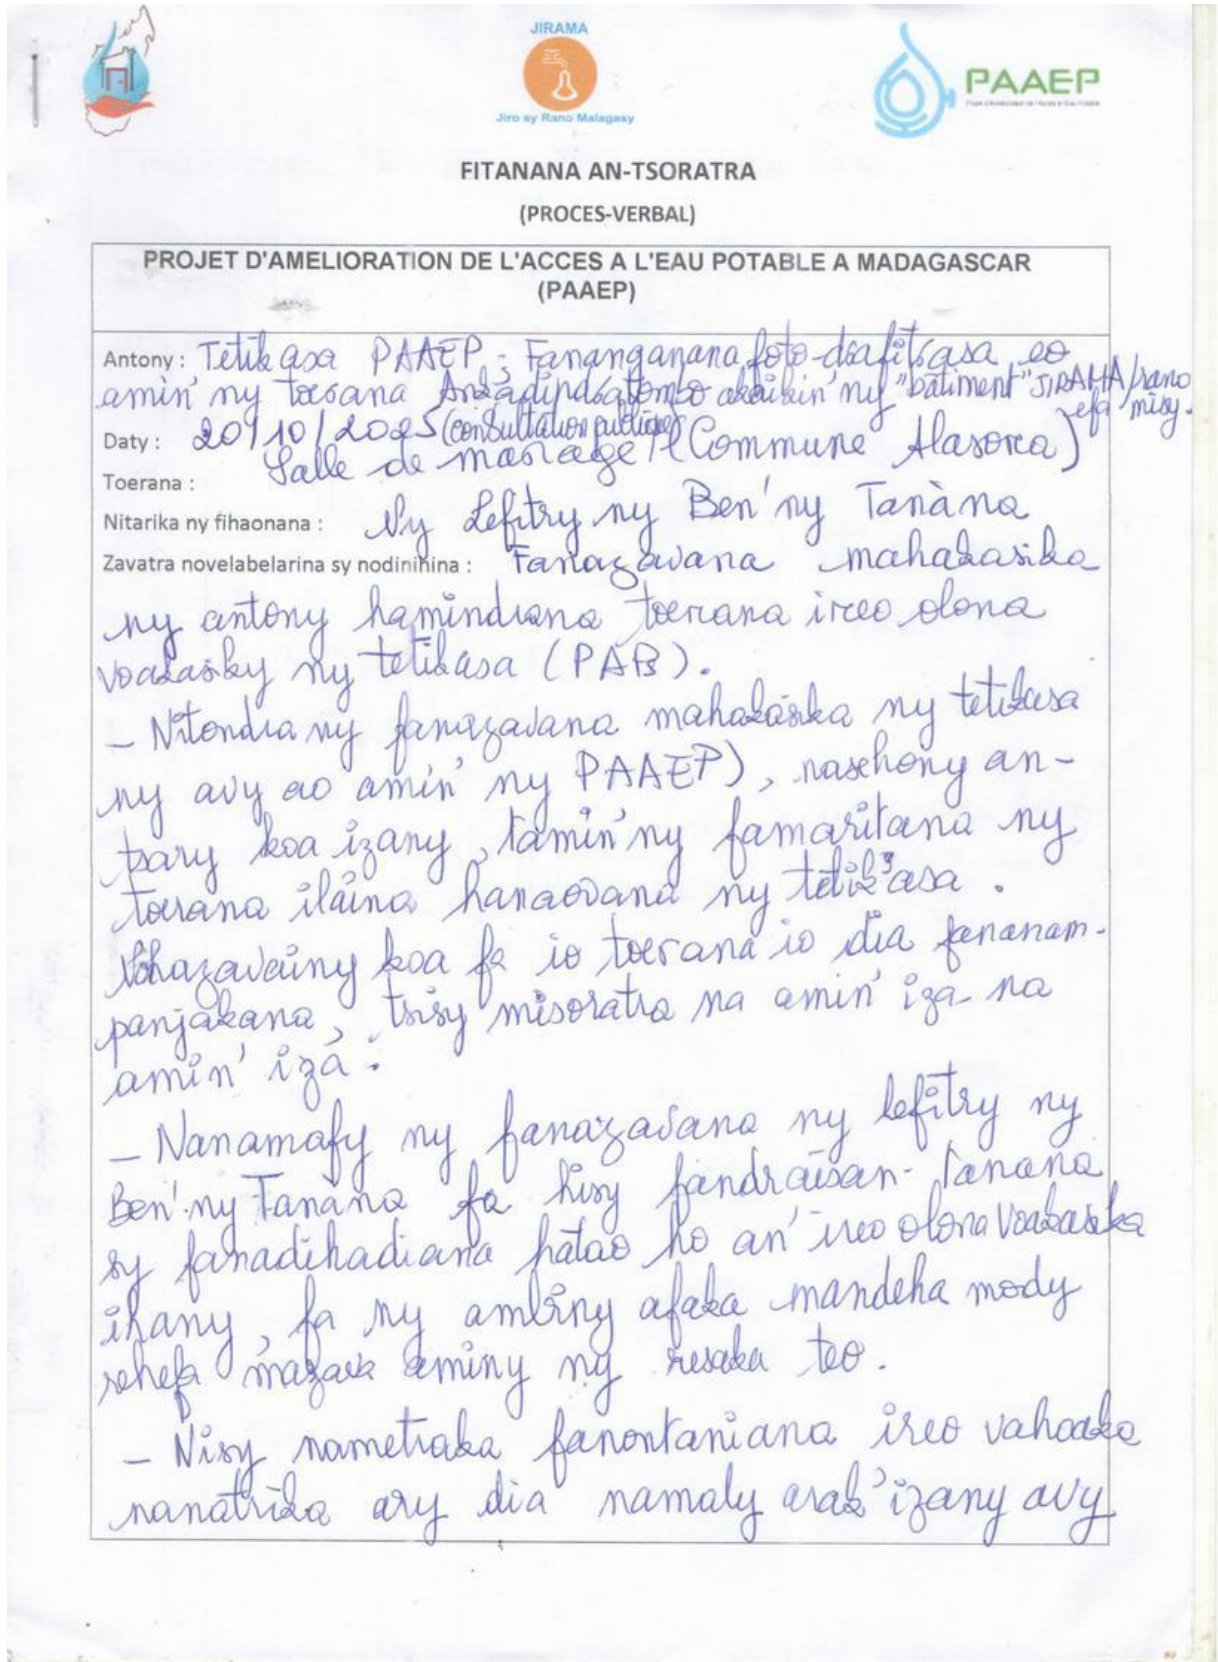 JIRAMA
Jiro sy Rano Malagasy
PAAEP
FITANANA AN-TSORATRA
(PROCES-VERBAL)
PROJET D'AMELIORATION DE L'ACCES A L'EAU POTABLE A MADAGASCAR
(PAAEP)
Antony : Tetikasa PAAEP ; Fananganana foto-drafitrasa eo
amin'ny toerana akaikin'ny "bâtiment" JIRAMA/rano
efa misy.
Daty : 20/10/2025 (consultation publique)
Toerana : Salle de mariage (Commune Alasora)
Nitarika ny fihaonana : Ny Lefitry ny Ben'ny Tanàna
Zavatra novelabelarina sy nodinihina : Fanazavana mahakasika
ny antony hamindrana toerana ireo olona
voakasiky ny tetikasa (PAB).
- Nitondra ny fanazavana mahakasika ny tetikasa
ny avy ao amin'ny PAAEP), nasehony an-
tsary koa izany, tamin'ny famaritana ny
toerana ilaina hanaovana ny tetik'asa.
Nohazavainy koa fa io toerana io dia fananam-
panjakana, tsisy misoratra na amin'iza na
amin'iza.
- Nanamafy ny fanazavana ny lefitry ny
Ben'ny Tanana fa hisy fandraisan-tanana
sy fanadihadiana hatao ho an'ireo olona voakasika
ihany, fa ny ambiny afaka mandeha mody
rehefa mazava aminy ny resaka teo.
- Nisy nametraka fanontaniana ireo vahoaka
nanatrika ary dia namaly arak'izany avy